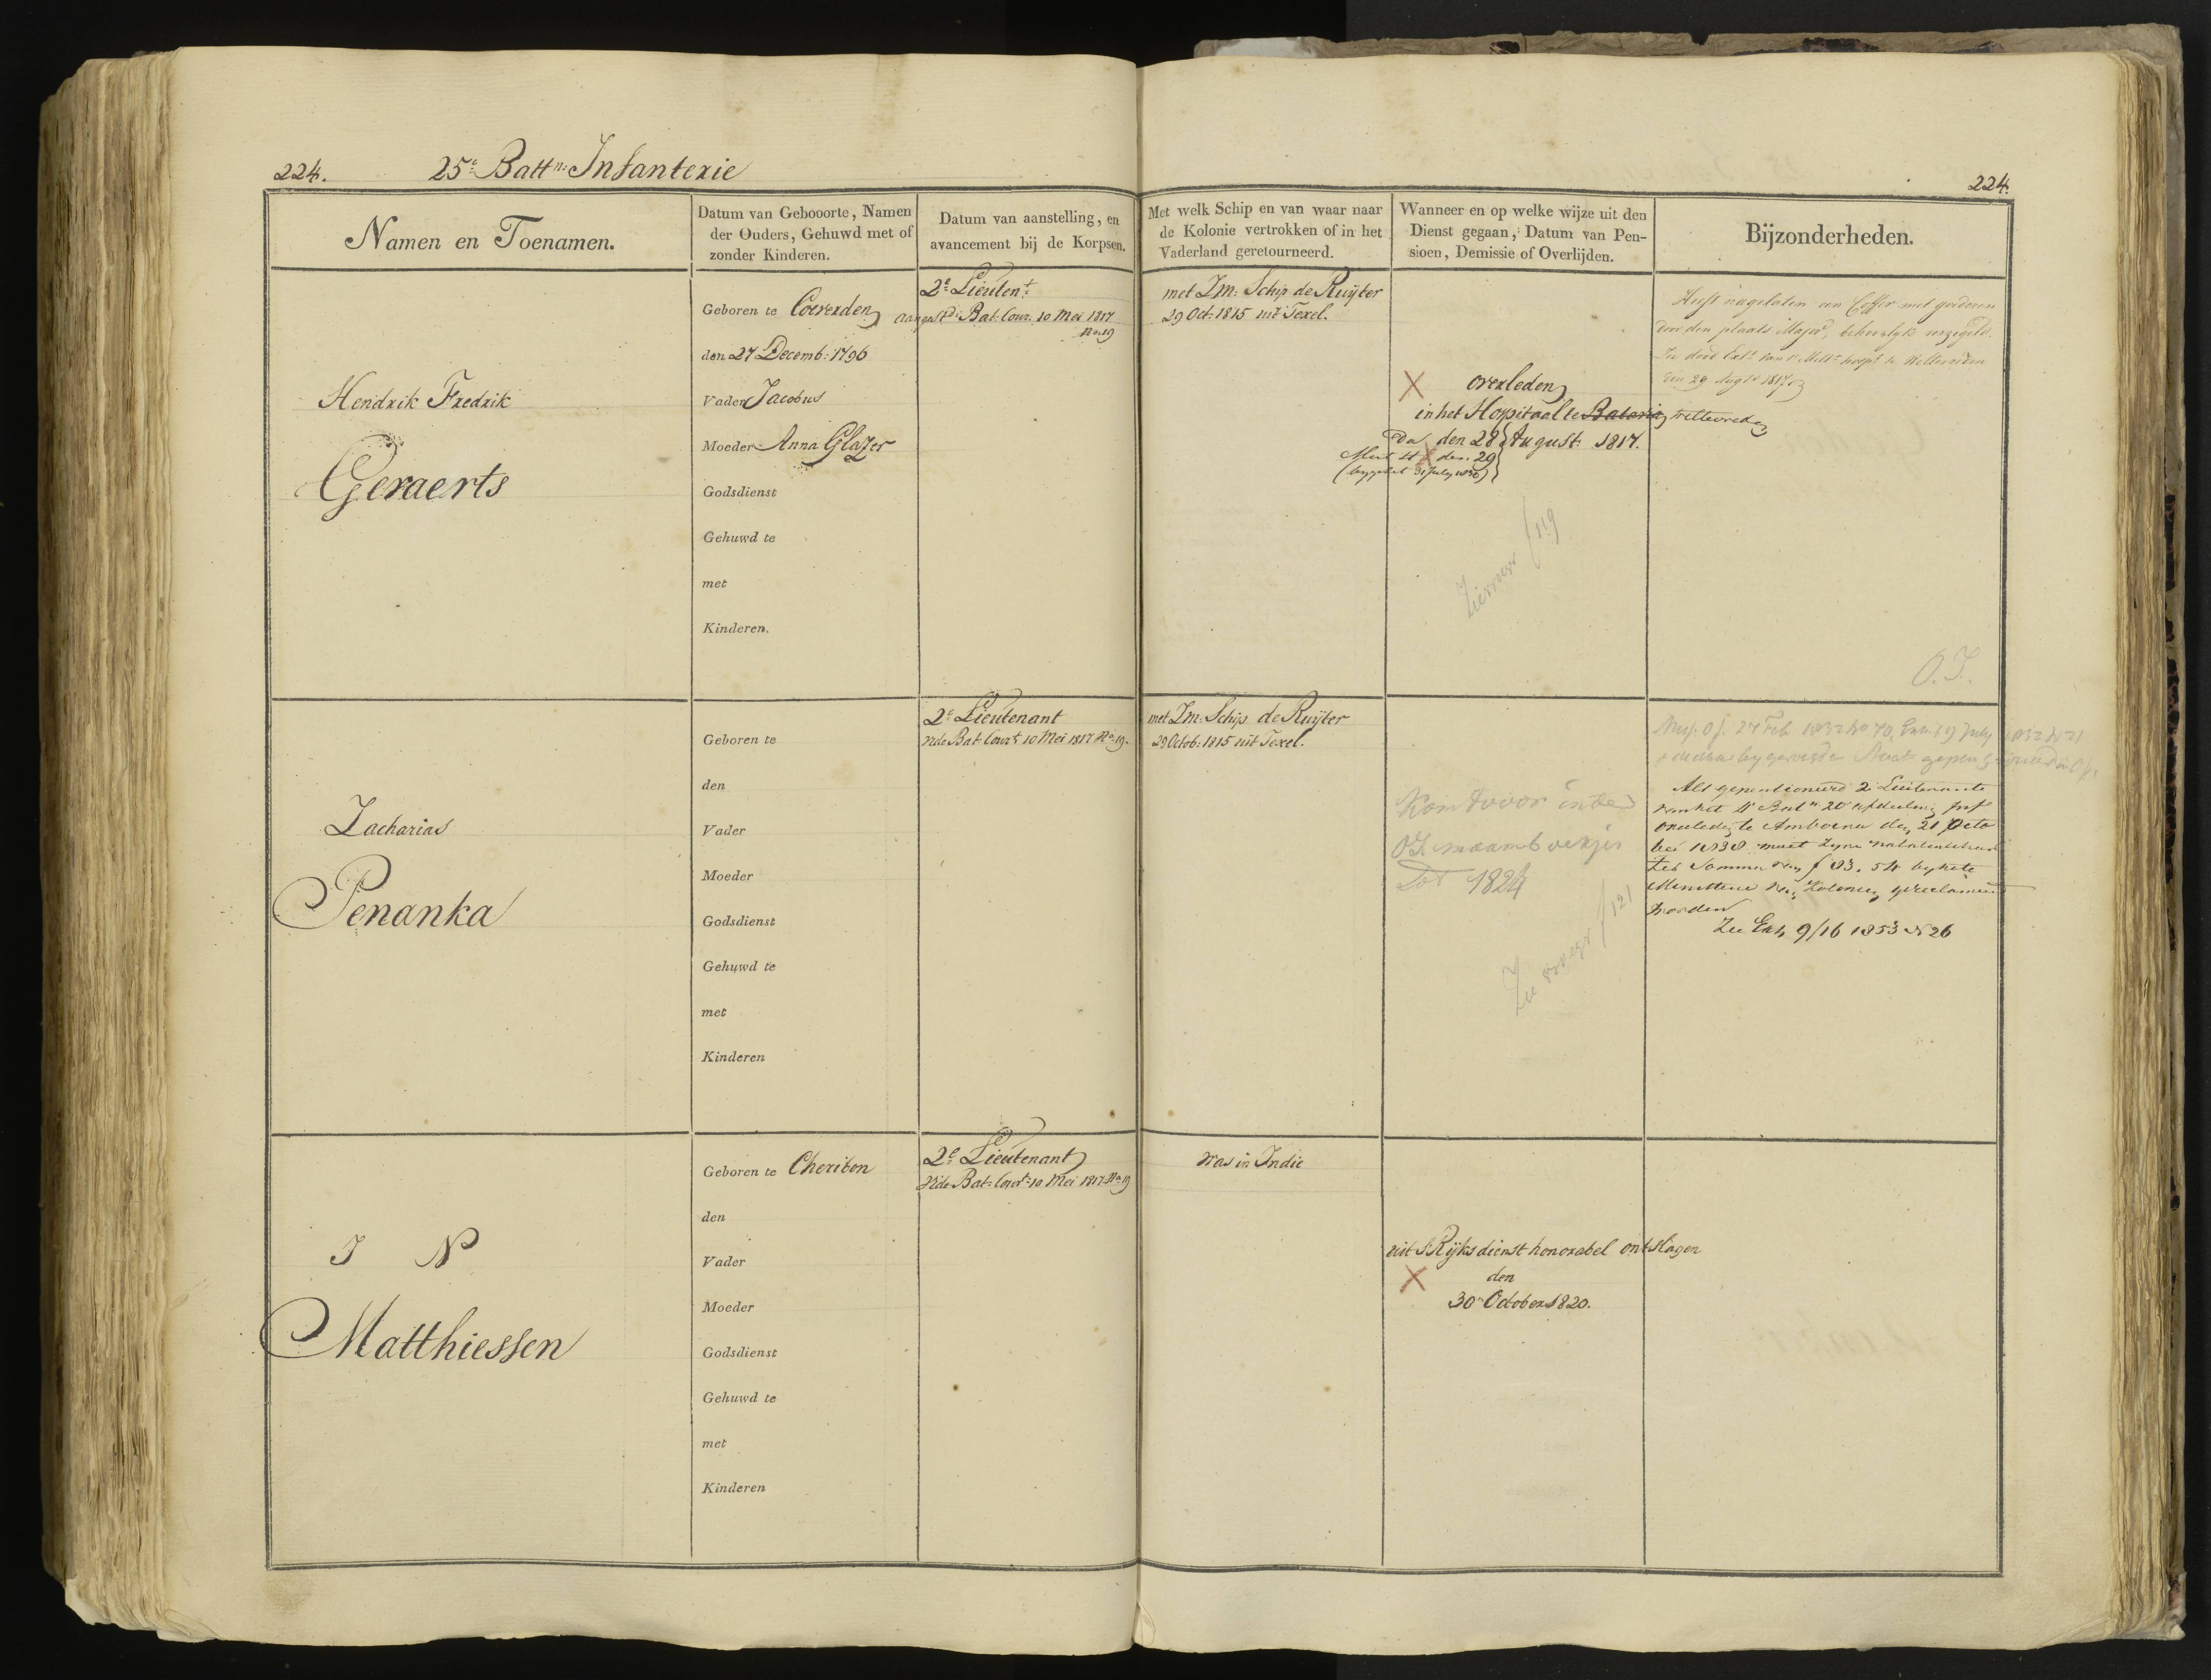 224.
25e Battn: Infanterie
224.
Namen en Toenamen.
Datum van Gebooorte, Namen
der Ouders, Gehuwd met of
zonder Kinderen.
Datum van aanstelling, en
avancement bij de Korpsen.
Met welk Schip en van waar naar
de Kolonie vertrokken of in het
Vaderland geretourneerd.
Wanneer en op welke wijze uit den
Dienst gegaan, Datum van Pen-
sioen, Demissie of Overlijden.
Bijzonderheden.
Hendrik Fredrik
Geraerts
Geboren te Coeverden
den 27 Decemb: 1796
Vader Jacobus
Moeder Anna Glazer
Godsdienst
Gehuwd te
met
Kinderen.
2e Lieutent
aangestd: Bat: Cour. 10 Mei 1817
No 19
met Zm: Schip de Ruijter
29 Oct: 1815 uit Texel.
overleden
in het Hopitaal te Batavia Weltevreden
den 28 August: 1817.
den 29
31 July
Heeft nagelaten een Coffer met goederen
door den plaats Major, behoorlyk verzegeld.
29 Augt 1817
O.I.
Zacharias
Penanka
Geboren te
den
Vader
Moeder
Godsdienst
Gehuwd te
met
Kinderen
2e Lieutenant
vide Bat: Court 10 Mei 1817 No 19.
met Zm: Schip de Ruijter
29 Octob: 1815 uit Texel.
Komt voor in de
OI naamboekjes
Tot 1824
Zie voegr /121
27 Feb 1832 No 70 19 July 1832
Als gepensioneerd 2e Luitenant
van het 4e Batn 20e afdeeling Inf
overleden te Amboina den 21 Octo
ber 1838 moet zyne nalatenschap
ter Somma van f 83.54 by het
Ministerie van Kolonien gereclameerd
worden
Zie Exh 9/16 1853 No 26
J N
Matthiessen
Geboren te Cheribon
den
Vader
Moeder
Godsdienst
Gehuwd te
met
Kinderen
2e Lieutenant
Vide Bat: Court: 10 Mei 1817 No 19
was in Indie
uit S Rijks dienst honorabel ontslagen
den
30n October 1820.